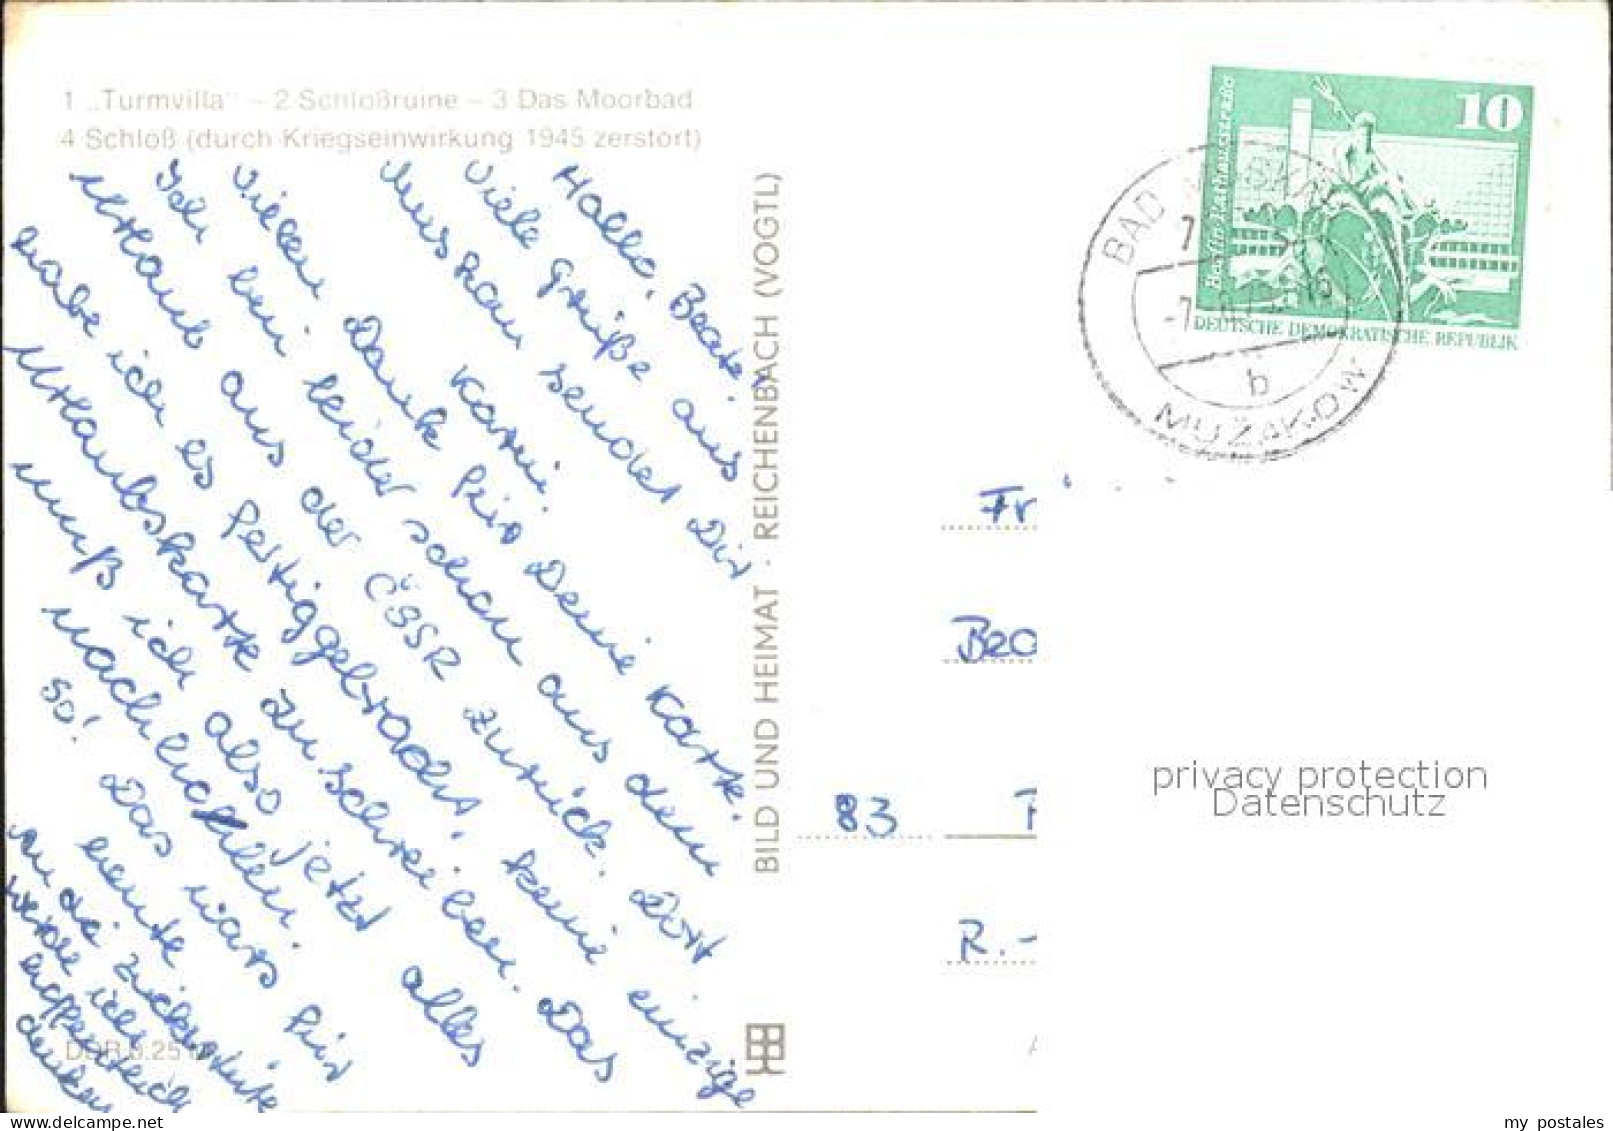 1 „Turmvilla“ – 2 Schloßruine – 3 Das Moorbad
4 Schloß (durch Kriegseinwirkung 1945 zerstört)
Hallo, Beate!
Viele Grüße aus
Muskau sendet Dir
Karin.
Vielen Dank für Deine Karte.
Ich bin leider schon aus dem
Urlaub aus der ČSSR zurück. Dort
habe ich es fertiggebracht, keine einzige
Urlaubskarte zu schreiben. Das
muß ich also jetzt alles
nachholen.
So! Das wärs für
heute
An die
werde ich
denken
BILD UND HEIMAT · REICHENBACH (VOGTL)
10
Berlin, Rathausstraße
DEUTSCHE DEMOKRATISCHE REPUBLIK
BAD
b
MUŽAKOW
Fr
Bea
83
R.-
privacy protection
Datenschutz
my postales